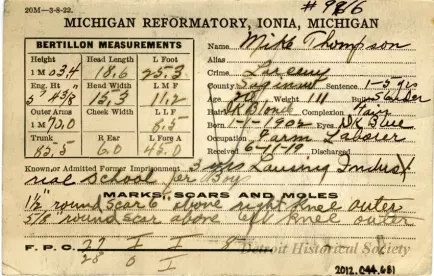 # 9816
20M—3-8-22.
MICHIGAN REFORMATORY, IONIA, MICHIGAN
BERTILLON MEASUREMENTS
Height Head Length L Foot
1 M 03,4 18,6 25,3
Eng. Ht Head Width L M F
5' 4 3/8 " 15,3 11,2
Outer Arms Cheek Width L L F
1 M 70,0 8,5
Trunk R Ear L Fore A
85,5 6,0 45,0
Name Mike Thompson
Alias
Crime Larceny
County Saginaw Sentence 1-5 yrs
Age Weight 111 Build Slender
Hair Blond Complexion Fair
Born 1902 Eyes Blue
Occupation Farm Labour
Received 6-19 Discharged
Known or Admitted Former Imprisonment 3 yrs Lansing Indust
rial School for Boys
MARKS, SCARS AND MOLES
1 1/2 " round scar 6 above right knee outer
5/8 " round scar above left knee outer
F. P. C. 27 I I 8
28 0 I
Detroit Historical Society
2012.044.681